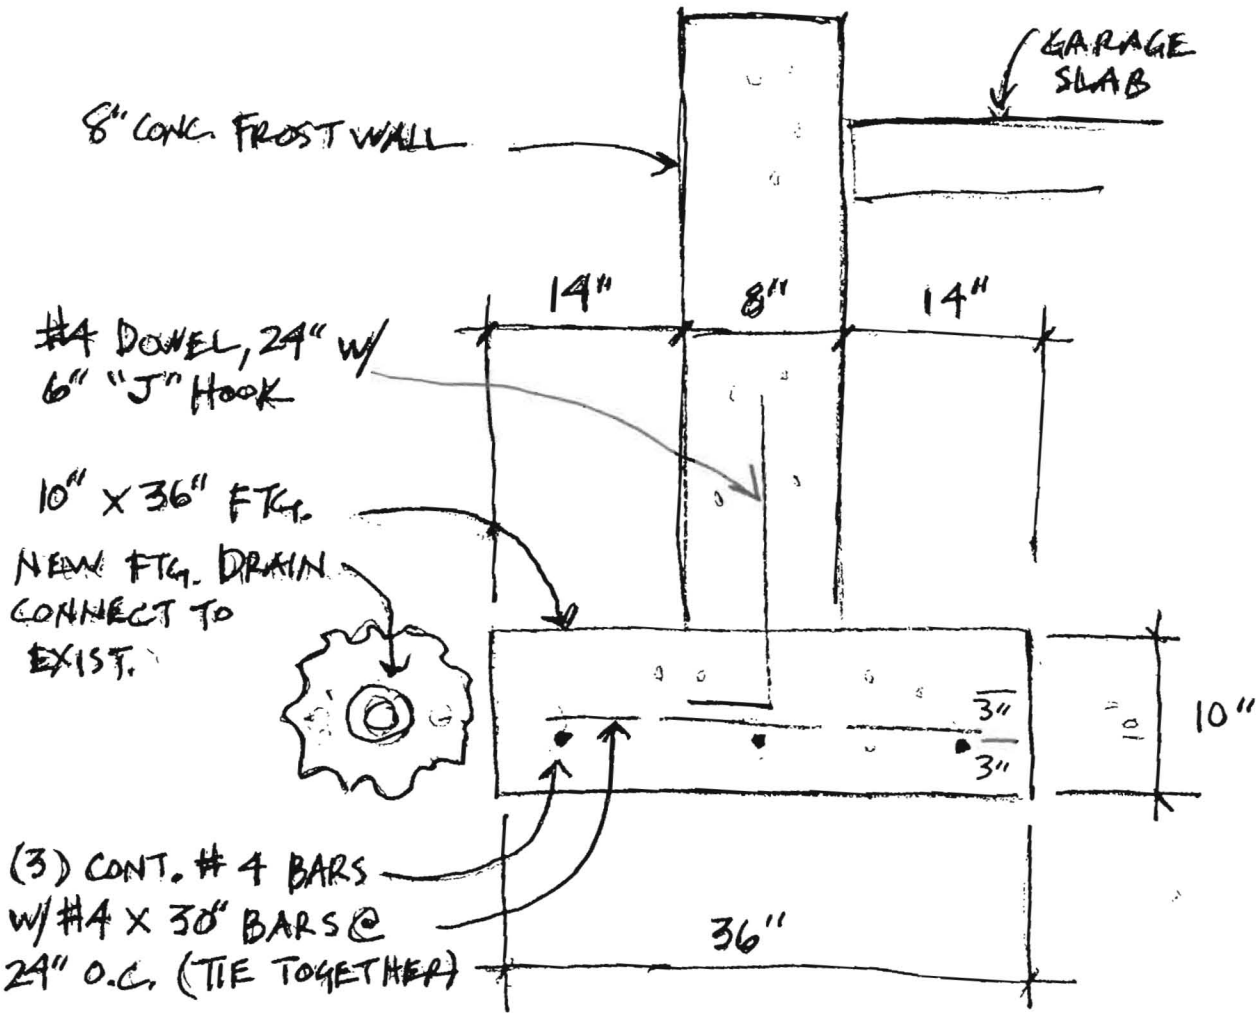 GARAGE
SLAB
8" CONC. FROST WALL
14"
8"
14"
#4 DOWEL, 24" W/
6" "J" HOOK
10" X 36" FTG.
NEW FTG. DRAIN
CONNECT TO
EXIST.
3"
3"
10"
(3) CONT. #4 BARS
W/ #4 X 30" BARS @
24" O.C. (TIE TOGETHER)
36"